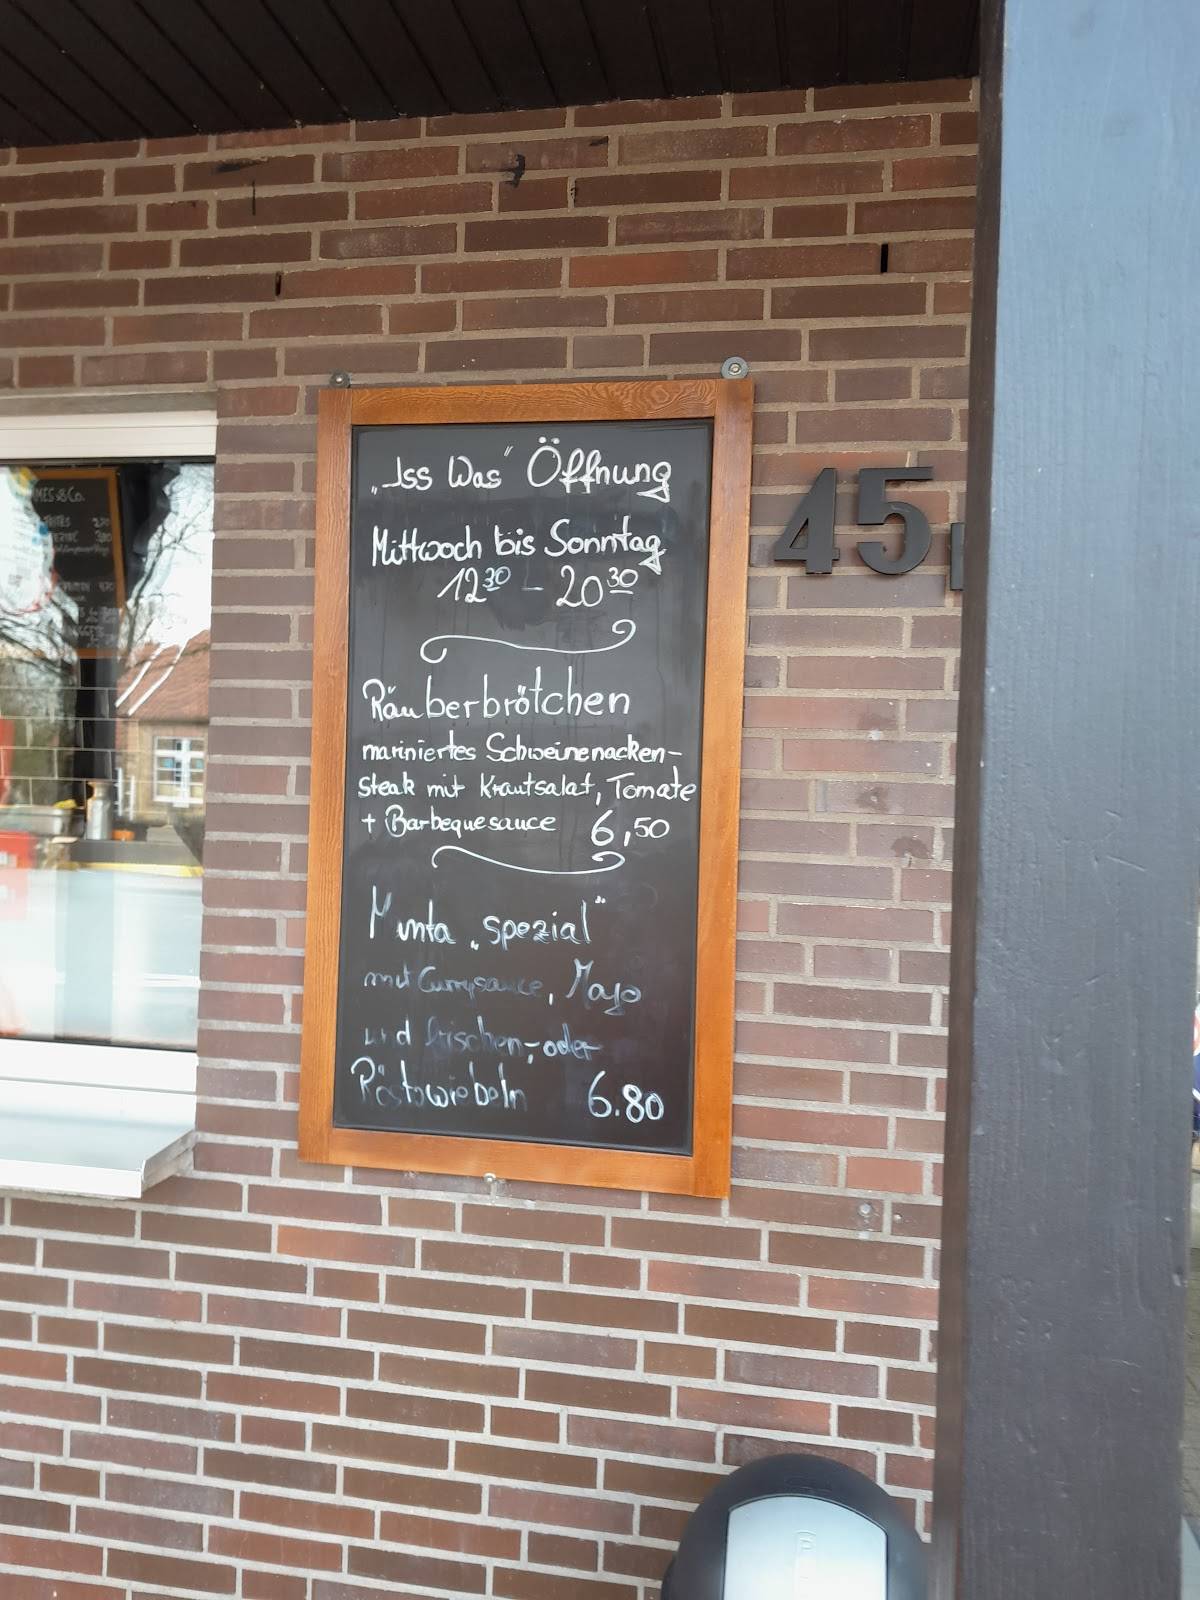 „Iss Was" Öffnung
Mittwoch bis Sonntag
12³⁰ – 20³⁰
Räuberbrötchen
mariniertes Schweinenacken-
steak mit Krautsalat, Tomate
+ Barbequesauce 6,50
Manta „spezial"
mit Currysauce, Mayo
und frischen-, oder
Röstzwiebeln 6.80
45